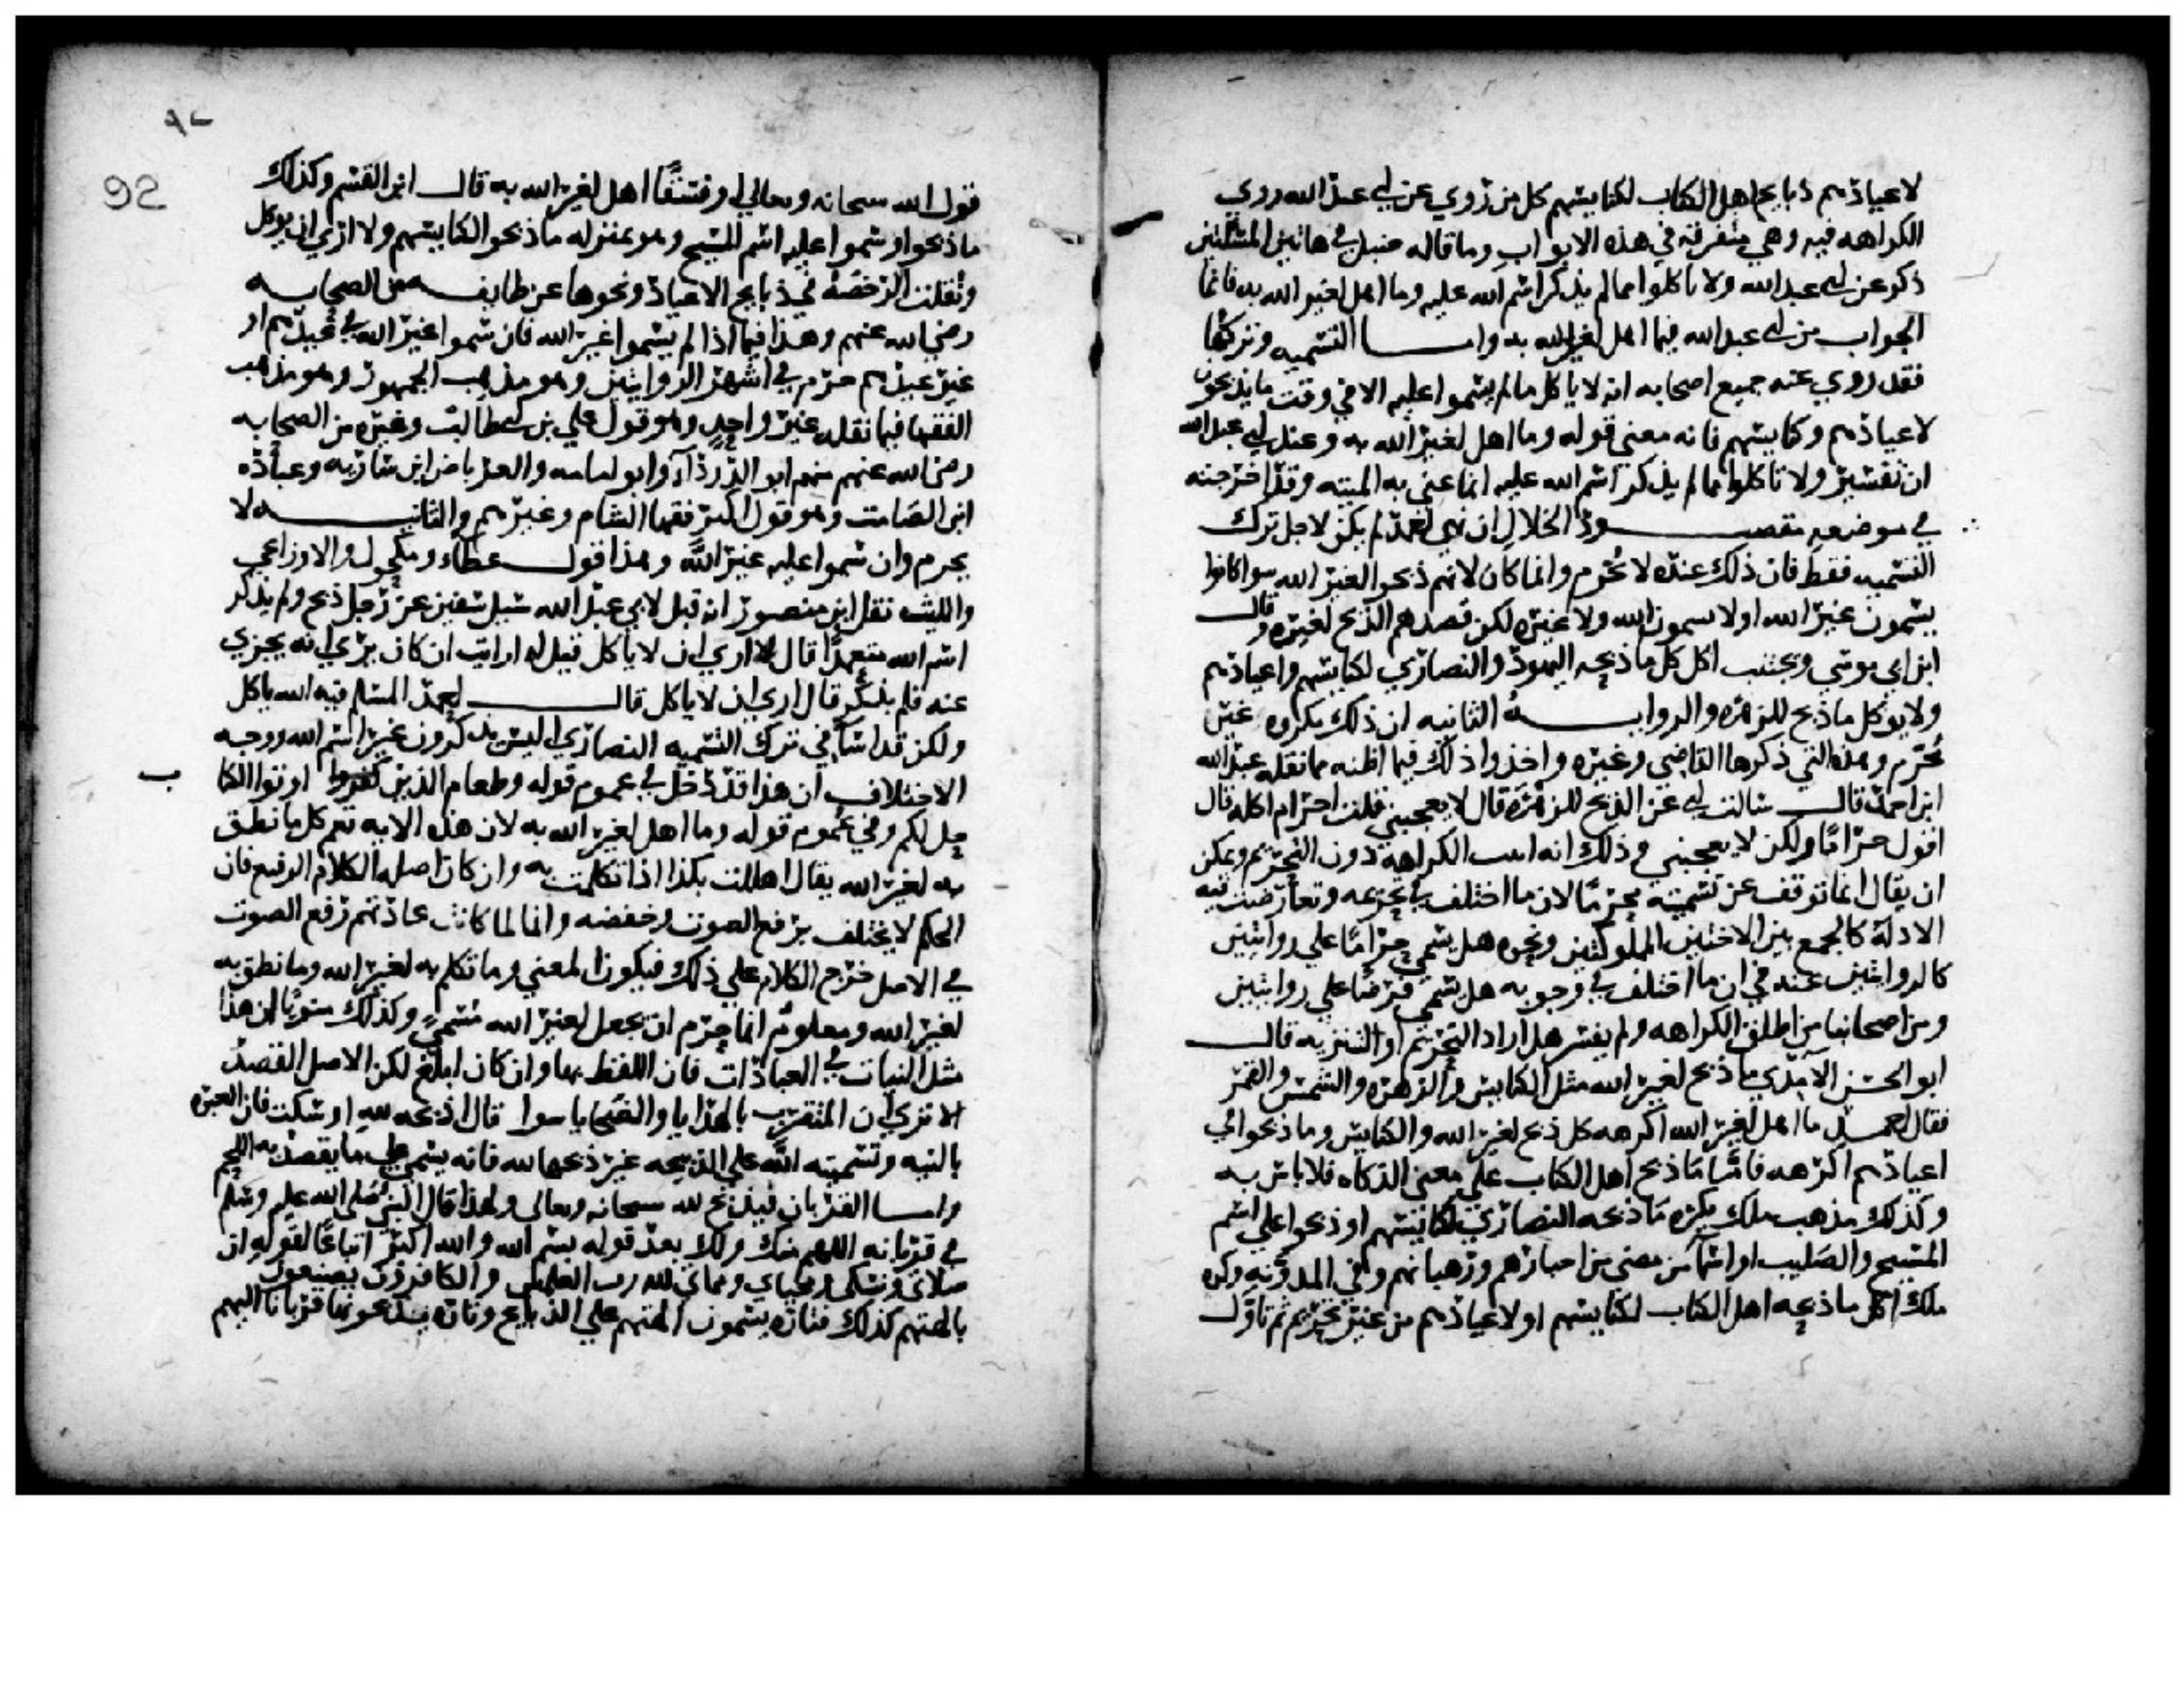 لاعيادهم ذبايح اهل الكتاب لكنايسهم كل من روي عن ابي عبد الله روي
الكراهه فيه وهي متفرقه في هذه الابواب وما قاله حنبل في هاتين المسئلتين
ذكر عن ابي عبد الله ولا تاكلوا مما لم يذكر اسم الله عليه وما اهل لغير الله به فانما
الجواب من ابي عبد الله فيما اهل لغير الله به واما التسميه وتركها
فقد روي عنه جميع اصحابه انه لا باكل ما لم يسموا عليه الا في وقت ما يذبحون
لاعيادهم وكنايسهم فانه معني قوله وما اهل لغير الله به وعند ابي عبد الله
ان تفسير ولا تاكلوا مما لم يذكر اسم الله عليه انما عني به الميته وقد اخرجته
في موضعه مقصود الخلال ان نهي احمد لم يكن لاجل ترك
التسميه فقط فان ذلك عنده لا يحرم وانما كان لانهم ذبحوا لغير الله سوا كانوا
يسمون غير الله او لا يسمون الله ولا غيره لكن قصدهم الذبح لغيره وقال
ابن ابي موسي ويجتنب اكل كل ما ذبحه اليهود والنصاري لكنايسهم واعيادهم
ولا يوكل ما ذبح للزهره والروايه الثانيه ان ذلك مكروه غير
محرم وهذه التي ذكرها القاضي وغيره واخذوا ذلك فيما اظنه مما نقله عبد الله
ابن احمد قال سالت ابي عن الذبح للزهره قال لا يعجبني فقلت احرام اكله قال
اقول حراما ولكن لا يعجبني وذلك انه اثبت الكراهه دون التحريم ويمكن
ان يقال انما توقف عن تسميته محرما لان ما اختلف في تحريمه وتعارضت فيه
الادله كالجمع بين الاختين المملوكتين ونحوه هل يسمي حراما علي روايتين
كالروايتين عنه في ان ما اختلف في وجوبه هل يسمي فرضا علي روايتين
ومن اصحابنا من اطلق الكراهه ولم يفسر هل اراد التحريم او التنزيه قال
ابو الحسن الآمدي ما ذبح لغير الله مثل الكنايس والزهره والشمس والقمر
فقال احمد ما اهل لغير الله اكرهه كل ذبح لغير الله والكنايس وما ذبحوا في
اعيادهم اكرهه فاما ما ذبح اهل الكتاب علي معني الذكاه فلا باس به
وكذلك مذهب ملك يكره ما ذبحه النصاري لكنايسهم او ذبحوا علي اسم
المسيح والصليب او اسما من مضي من احبارهم ورهبانهم وفي المدونه وكره
ملك اكل ما ذبحه اهل الكتاب لكنايسهم او لاعيادهم من غير تحريم ثم تاول
٩٢
92
قول الله سبحانه وتعالي او فسقا اهل لغير الله به قال ابن القسم وكذلك
ما ذبحوا وسموا عليه اسم المسيح وهو بمنزله ما ذبحوا لكنايسهم ولا اري ان يوكل
ونقلت الرخصه في ذبايح الاعياد ونحوها عن طايفه من الصحابه
رضي الله عنهم وهذا فيما اذا لم يسموا غير الله فان سموا غير الله في عيدهم او
غير عيدهم حرم في اشهر الروايتين وهو مذهب الجمهور وهو مذهب
الفقها فيما نقله غير واحد وهو قول علي بن ابي طالب وغيره من الصحابه
رضي الله عنهم منهم ابو الدردآء وابو امامه والعرباض ابن ساريه وعباده
ابن الصامت وهو قول اكثر فقها الشام وغيرهم والثانيه لا
يحرم وان سموا عليه غير الله وهذا قول عطاء ومكحول والاوزاعي
والليث نقل ابن منصور انه قيل لابي عبد الله سيل سفين عن رجل ذبح ولم يذكر
اسم الله متعمدا قال اري ان لا ياكل قيل له ارايت ان كان يري انه يجزي
عنه فلم يذكر قال اري ان لا ياكل قال احمد المسلم فيه الله ياكل
ولكن قد اسا في ترك التسميه النصاري اليس يذكرون غير اسم الله ووجه
الاختلاف ان هذا قد دخل في عموم قوله وطعام الذين كفروا اوتوا الكتا
ب
حل لكم وفي عموم قوله وما اهل لغير الله به لان هذه الايه تعم كل ما نطق
به لغير الله يقال اهللت بكذا اذا تكلمت به وان كان اصله الكلام الرفيع فان
الحكم لا يختلف برفع الصوت وخفضه وانما لما كانت عادتهم رفع الصوت
في الاصل خرج الكلام علي ذلك فيكون المعني وما تكلم به لغير الله وما نطق به
لغير الله ومعلوم انما حرم ان يجعل لغير الله مسمي وكذلك منويا لان هذا
مثل النيات في العبادات فان اللفظ بها وان كان ابلغ لكن الاصل القصد
الا تري ان المتقرب بالهدايا والضحايا سوا قال اذبحه لله او سكت فان العبره
بالنيه وتسميته الله علي الذبيحه غير ذبحها لله فانه يسمي علي ما يقصد به اللحم
واما القربان فيذبح لله سبحانه وتعالي ولهذا قال النبي صلى الله عليه وسلم
في قربانه اللهم منك ولك بعد قوله بسم الله والله اكبر اتباعا لقوله ان
صلاتي ونسكي ومحياي ومماتي لله رب العلمين والكافرون يصنعون
بالهتهم كذلك فتاره يسمون الهتهم علي الذبايح وتاره يذبحونها قربانا اليهم